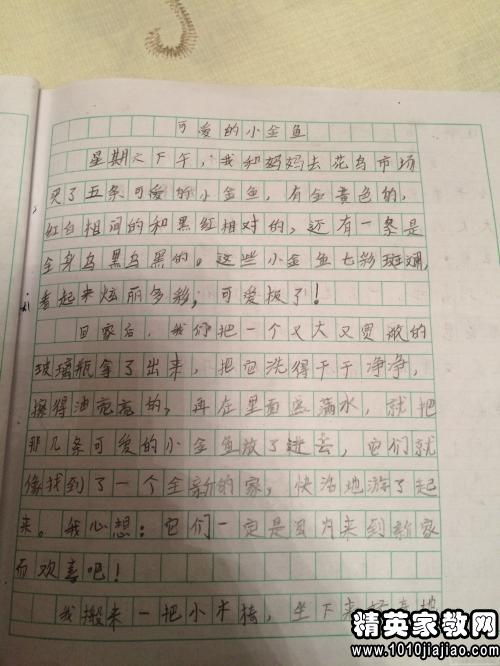 可爱的小金鱼
星期天下午，我和妈妈去花鸟市场
买了五条可爱的小金鱼，有金黄色的，
红白相间的和黑红相对的，还有一条是
全身乌黑乌黑的。这些小金鱼七彩斑斓，
看起来炫丽多彩，可爱极了！
回家后，我们把一个又大又宽敞的
玻璃瓶拿了出来，把它洗得干干净净，
擦得油亮亮的，再在里面医满水，就把
那几条可爱的小金鱼放了进去，它们就
像找到了一个全新的家，快活地游了起
来。我心想：它们一定是因为来到新家
而欢喜吧！
我搬来一把小木椅，坐下来
精英家教网
www.1010jiajiao.com